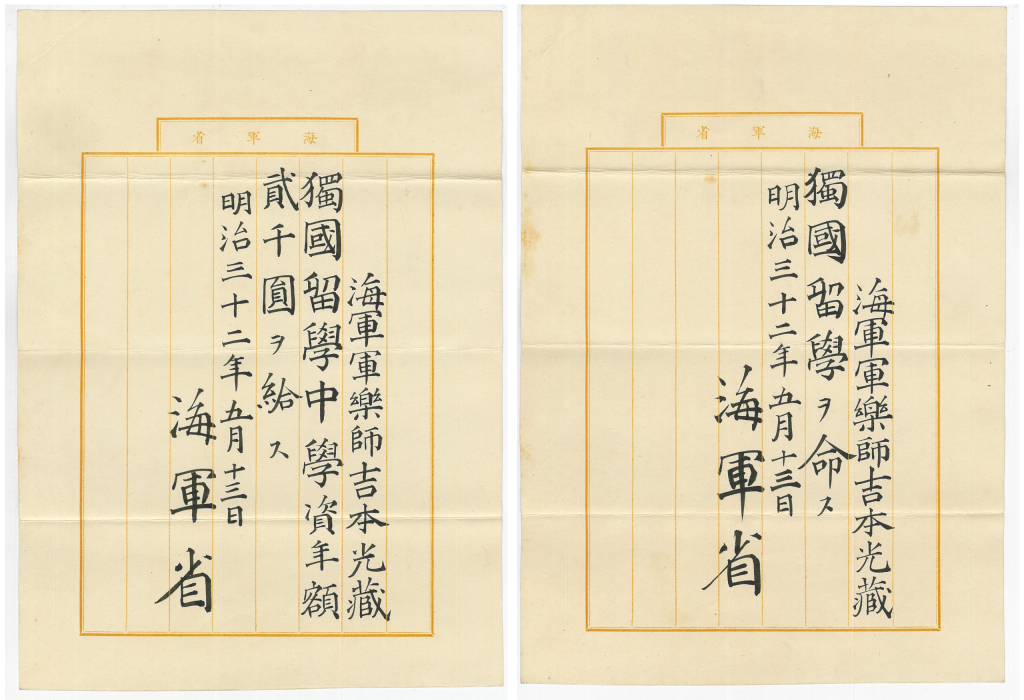 海軍省
海軍軍樂師吉本光藏
獨國留學ヲ命ス
明治三十二年五月十三日
海軍省
海軍省
海軍軍樂師吉本光藏
獨國留學中學資年額
貳千圓ヲ給ス
明治三十二年五月十三日
海軍省